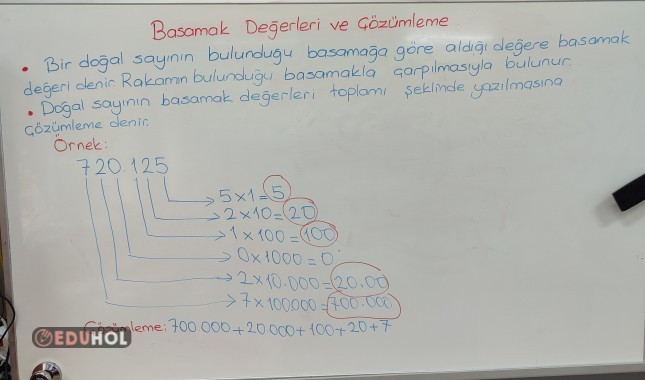 Basamak Değerleri ve Çözümleme
• Bir doğal sayının bulunduğu basamağa göre aldığı değere basamak
değeri denir. Rakamın bulunduğu basamakla çarpılmasıyla bulunur.
• Doğal sayının basamak değerleri toplamı şeklinde yazılmasına
çözümleme denir.
Örnek:
720.125
5x1=5
2x10=20
1x100=100
0x1000=0
2x10.000=20.00
7x100.000=700.000
Çözümleme: 700.000+20.000+100+20+7
EDUHOL